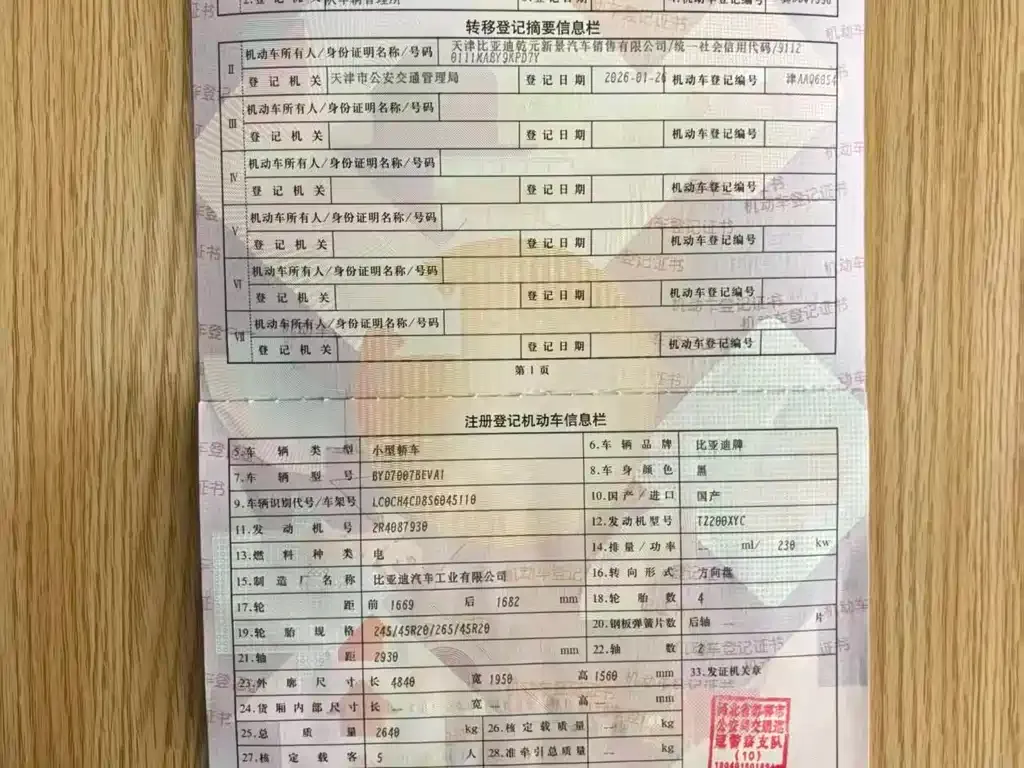 转移登记摘要信息栏
II 机动车所有人/身份证明名称/号码 天津比亚迪乾元新景汽车销售有限公司/统一社会信用代码/9112
0111MABY9KPD7Y
登记机关 天津市公安交通管理局 登记日期 2026-01-26 机动车登记编号 津AAQ6054
III 机动车所有人/身份证明名称/号码
登记机关 登记日期 机动车登记编号
IV 机动车所有人/身份证明名称/号码
登记机关 登记日期 机动车登记编号
V 机动车所有人/身份证明名称/号码
登记机关 登记日期 机动车登记编号
VI 机动车所有人/身份证明名称/号码
登记机关 登记日期 机动车登记编号
VII 机动车所有人/身份证明名称/号码
登记机关 登记日期 机动车登记编号
第1页
注册登记机动车信息栏
5.车辆类型 小型轿车 6.车辆品牌 比亚迪牌
7.车辆型号 BYD7007BEVA1 8.车身颜色 黑
9.车辆识别代号/车架号 LC0CH4CD8S6045110 10.国产/进口 国产
11.发动机号 2R4087930 12.发动机型号 TZ200XYC
13.燃料种类 电 14.排量/功率 -- ml/ 230 kw
15.制造厂名称 比亚迪汽车工业有限公司 16.转向形式 方向盘
17.轮距 前 1669 后 1682 mm 18.轮胎数 4
19.轮胎规格 245/45R20/265/45R20 20.钢板弹簧片数 后轴 -- 片
21.轴距 2930 mm 22.轴数 2
23.外廓尺寸 长 4840 宽 1950 高 1560 mm 33.发证机关章
24.货厢内部尺寸 长 -- 宽 -- 高 -- mm
25.总质量 2640 kg 26.核定载质量 -- kg
27.核定载客 5 人 28.准牵引总质量 -- kg
(10)